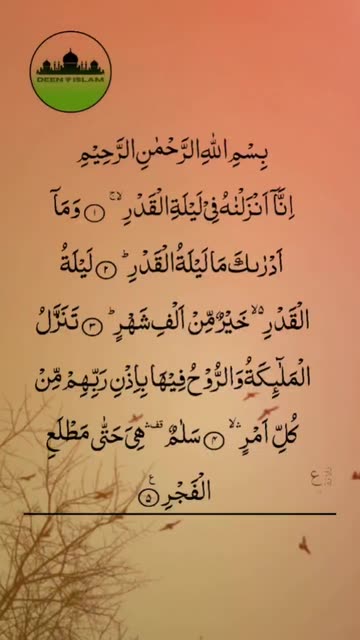 DEEN ISLAM
بِسْمِ اللّٰهِ الرَّحْمٰنِ الرَّحِيْمِ
اِنَّاۤ اَنْزَلْنٰهُ فِيْ لَيْلَةِ الْقَدْرِ ۚۖ ۝۱ وَمَاۤ
اَدْرٰىكَ مَا لَيْلَةُ الْقَدْرِ ؕ ۝۲ لَيْلَةُ
الْقَدْرِ ۙ۬ خَيْرٌ مِّنْ اَلْفِ شَهْرٍ ؕ ۝۳ تَنَزَّلُ
الْمَلٰٓئِكَةُ وَالرُّوْحُ فِيْهَا بِاِذْنِ رَبِّهِمْ مِّنْ
كُلِّ اَمْرٍ ۛۙ ۝۴ سَلٰمٌ ۛ۫ هِيَ حَتّٰى مَطْلَعِ
الْفَجْرِ ۝۵ ع
ع